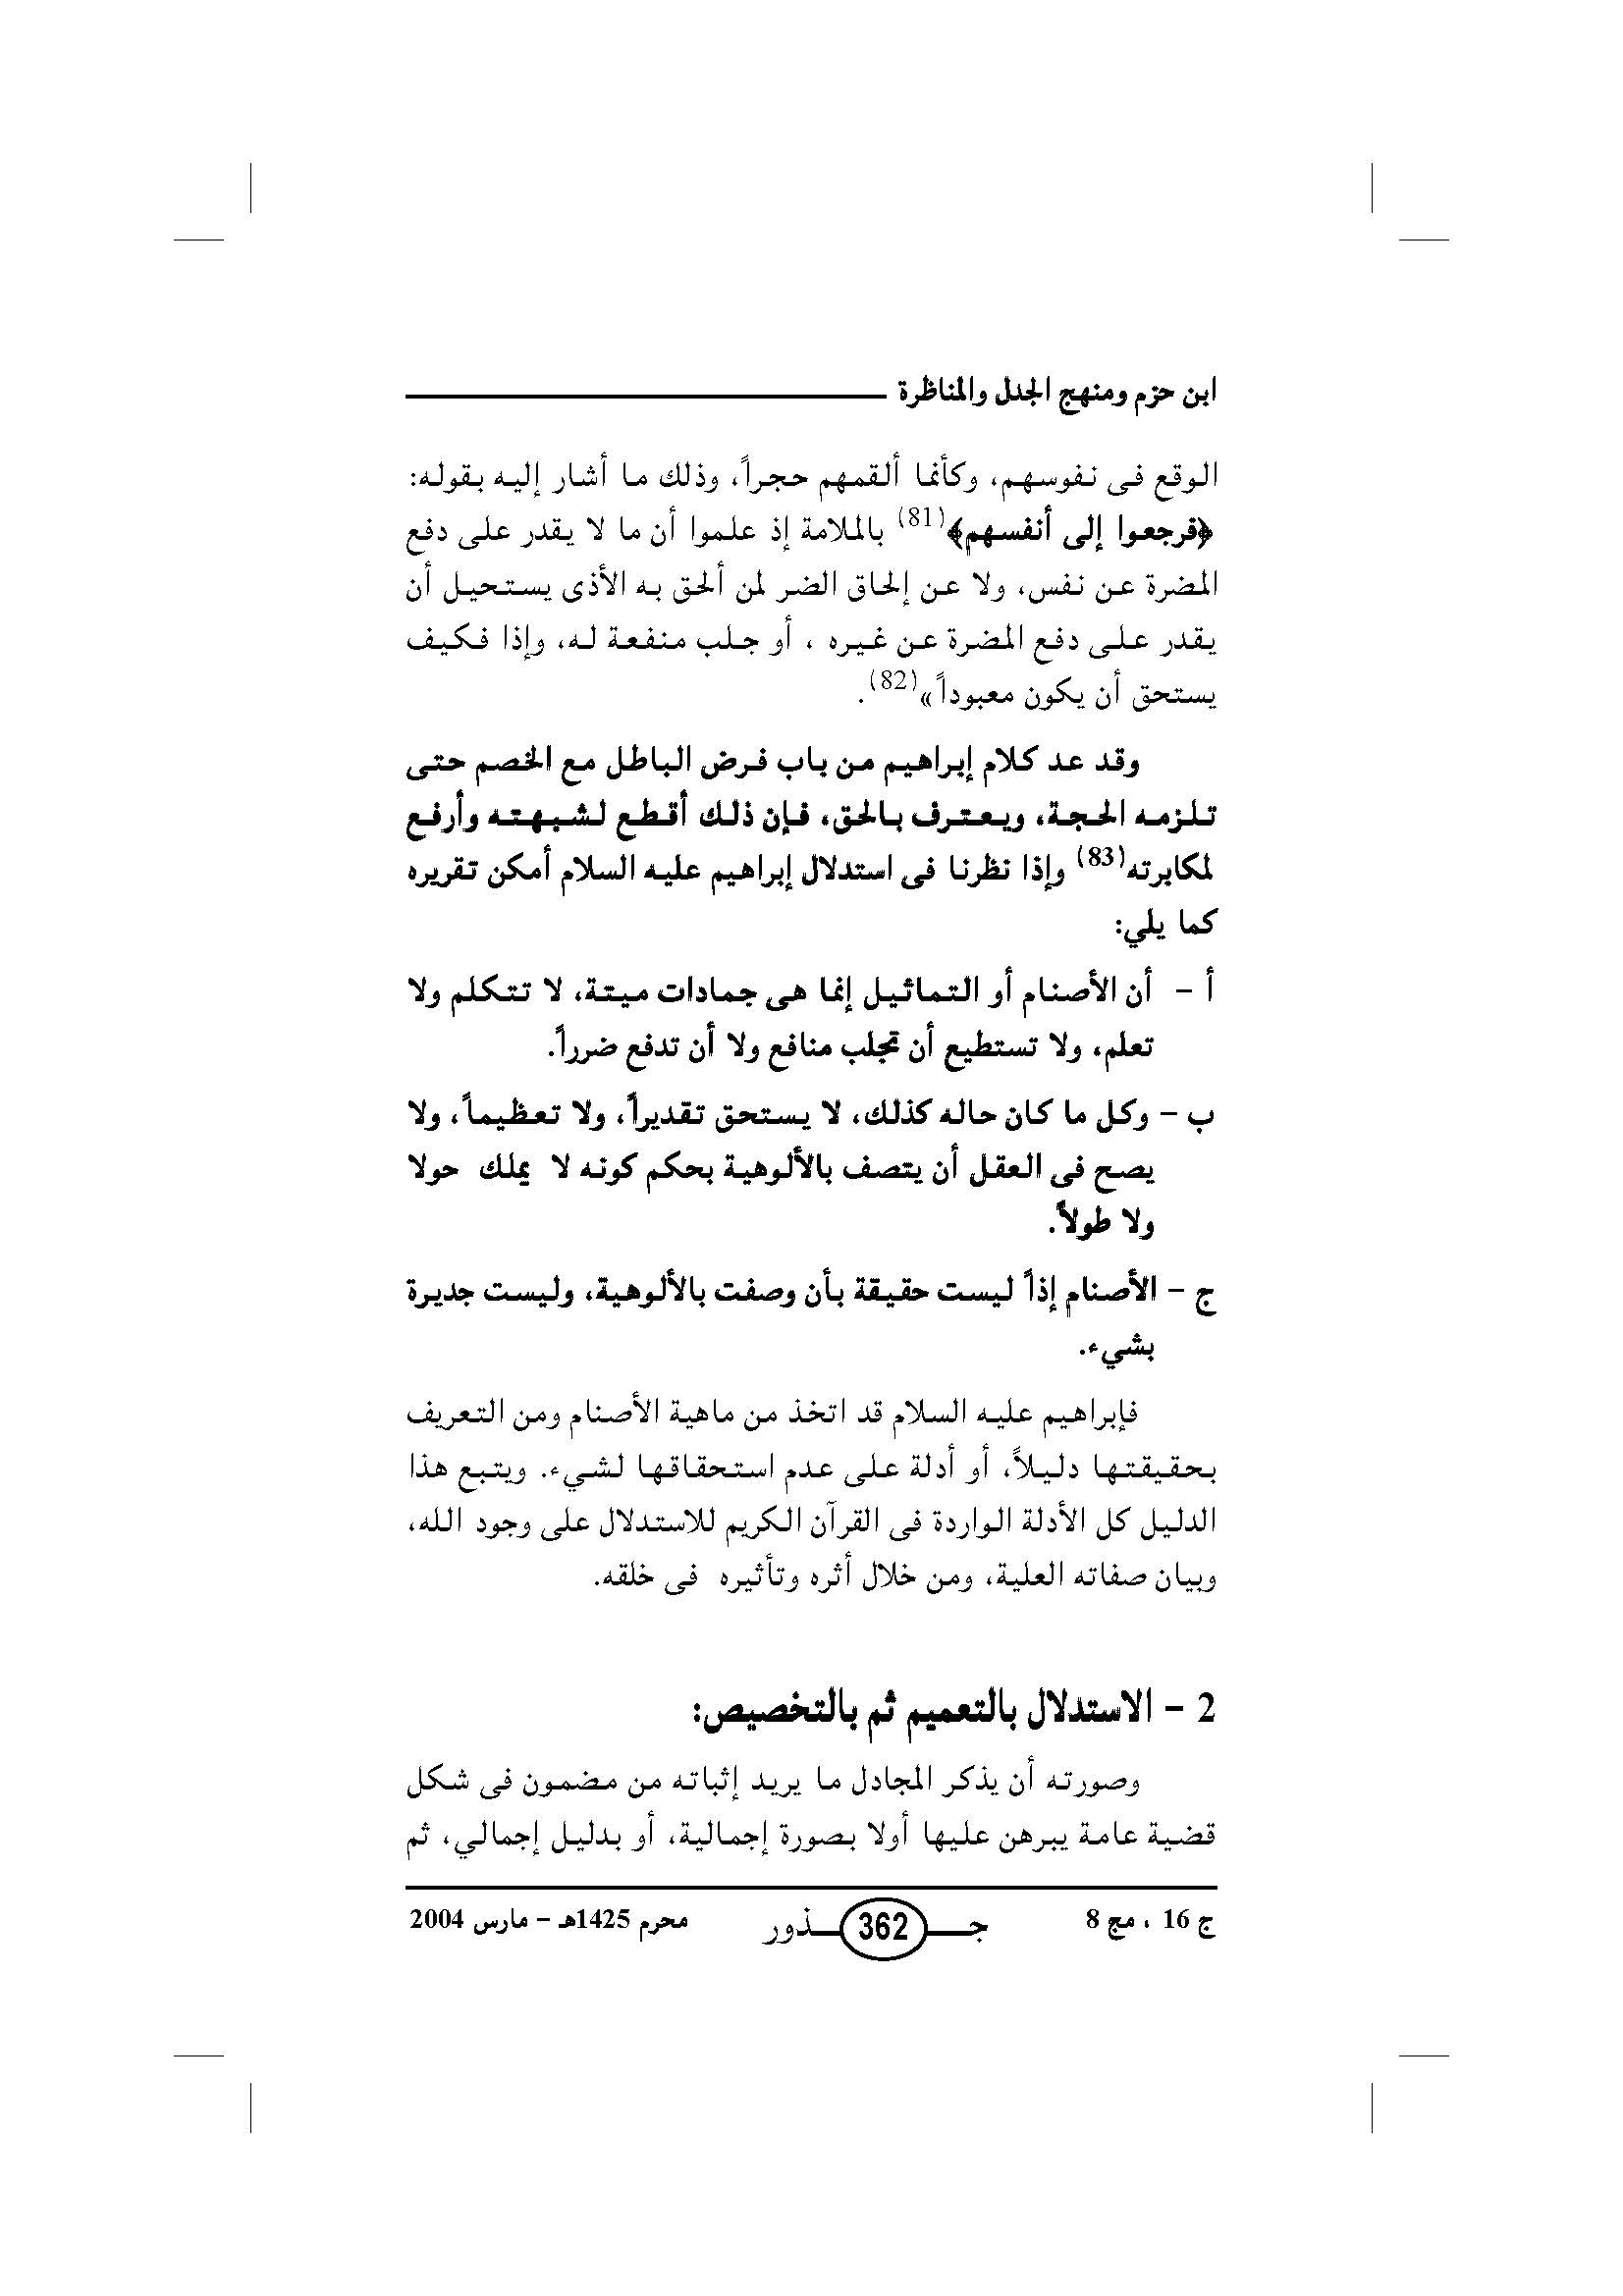 ابن حزم ومنهج الجدل والمناظرة
الوقع فى نفوسهم، وكأنما ألقمهم حجراً، وذلك ما أشار إليه بقوله:
﴿فرجعوا إلى أنفسهم﴾(81) بالملامة إذ علموا أن ما لا يقدر على دفع
المضرة عن نفس، ولا عن إلحاق الضر لمن ألحق به الأذى يستحيل أن
يقدر على دفع المضرة عن غيره ، أو جلب منفعة له، وإذا فكيف
يستحق أن يكون معبوداً»(82).
وقد عد كلام إبراهيم من باب فرض الباطل مع الخصم حتى
تلزمه الحجة، ويعترف بالحق، فإن ذلك أقطع لشبهته وأرفع
لمكابرته(83) وإذا نظرنا فى استدلال إبراهيم عليه السلام أمكن تقريره
كما يلي:
أ - أن الأصنام أو التماثيل إنما هى جمادات ميتة، لا تتكلم ولا
تعلم، ولا تستطيع أن تجلب منافع ولا أن تدفع ضرراً.
ب - وكل ما كان حاله كذلك، لا يستحق تقديراً، ولا تعظيماً، ولا
يصح فى العقل أن يتصف بالألوهية بحكم كونه لا يملك حولا
ولا طولاً.
ج - الأصنام إذاً ليست حقيقة بأن وصفت بالألوهية، وليست جديرة
بشيء.
فإبراهيم عليه السلام قد اتخذ من ماهية الأصنام ومن التعريف
بحقيقتها دليلاً، أو أدلة على عدم استحقاقها لشيء. ويتبع هذا
الدليل كل الأدلة الواردة فى القرآن الكريم للاستدلال على وجود الله،
وبيان صفاته العلية، ومن خلال أثره وتأثيره فى خلقه.
2 - الاستدلال بالتعميم ثم بالتخصيص:
وصورته أن يذكر المجادل ما يريد إثباته من مضمون فى شكل
قضية عامة يبرهن عليها أولا بصورة إجمالية، أو بدليل إجمالي، ثم
ج 16 ، مج 8 جـ 362 ـذور محرم 1425هـ - مارس 2004